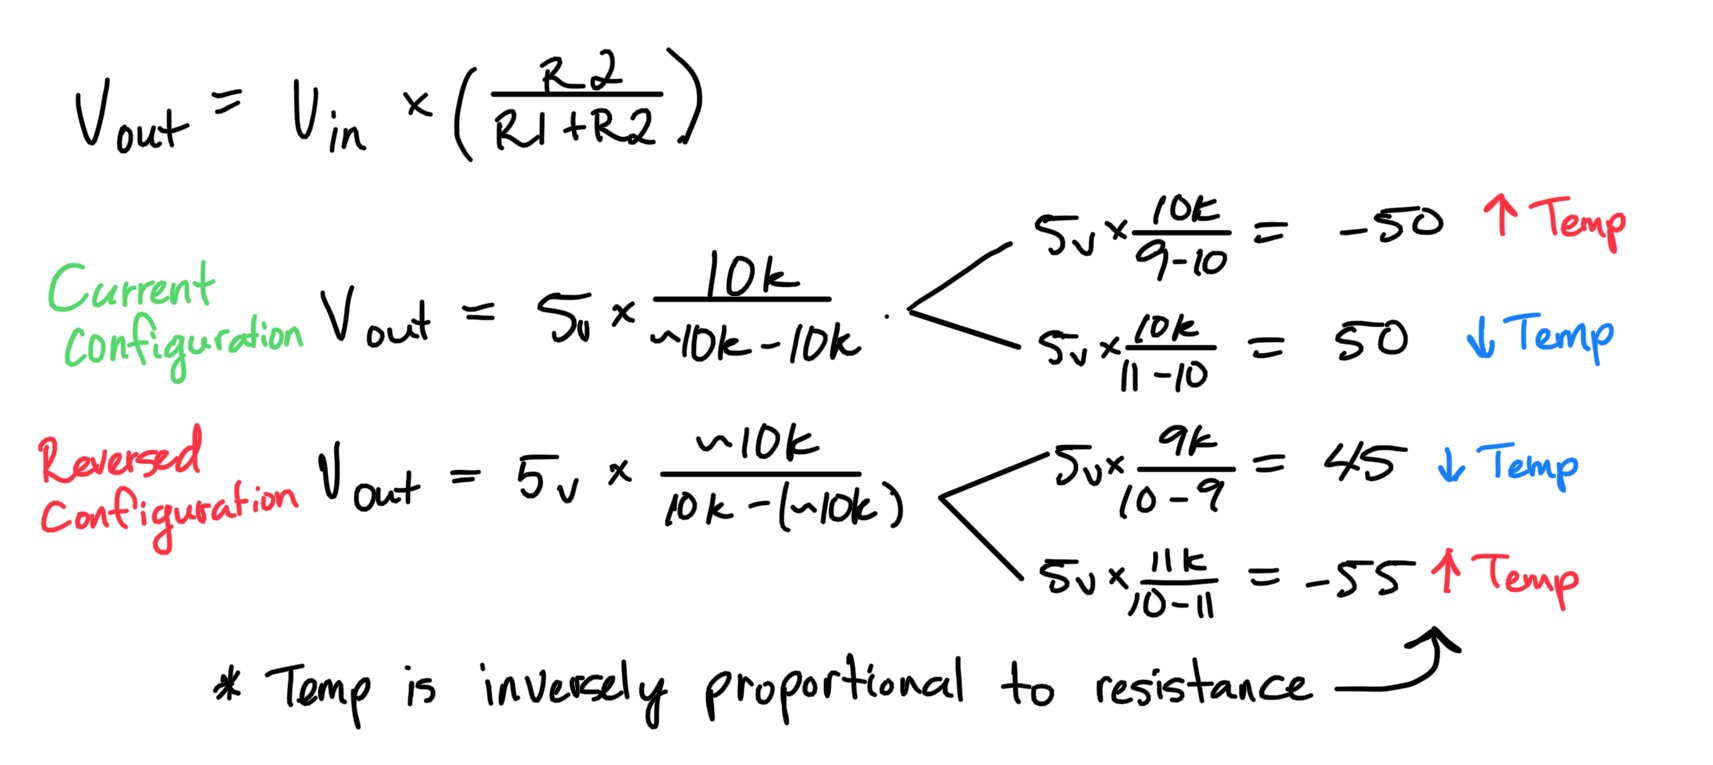 Vout = Vin × (R2 / R1+R2)
Current configuration Vout = 5v × 10k / ~10k - 10k
5v × 10k / 9-10 = -50 ↑ Temp
5v × 10k / 11-10 = 50 ↓ Temp
Reversed Configuration Vout = 5v × ~10k / 10k - (~10k)
5v × 9k / 10-9 = 45 ↓ Temp
5v × 11k / 10-11 = -55 ↑ Temp
* Temp is inversely proportional to resistance